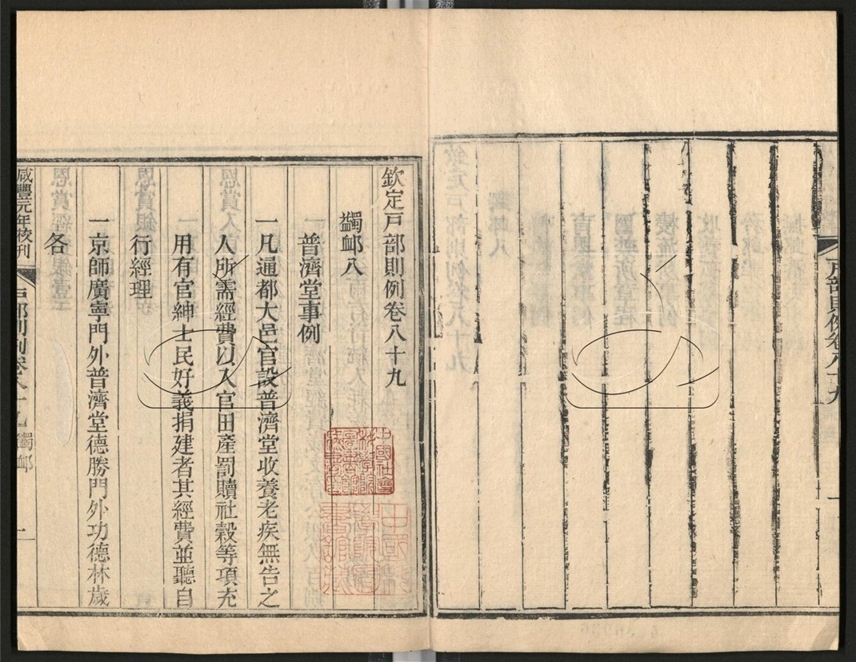 戶部則例卷八十九
一
欽定戶部則例卷八十九
蠲卹八
普濟堂事例
一凡通都大邑官設普濟堂收養老疾無告之
人所需經費以入官田產罰贖社穀等項充
用有官紳士民好義捐建者其經費並聽自
行經理
一京師廣寧門外普濟堂德勝門外功德林歲
各
咸豐元年校刊
戶部則例卷八十九 蠲卹
一